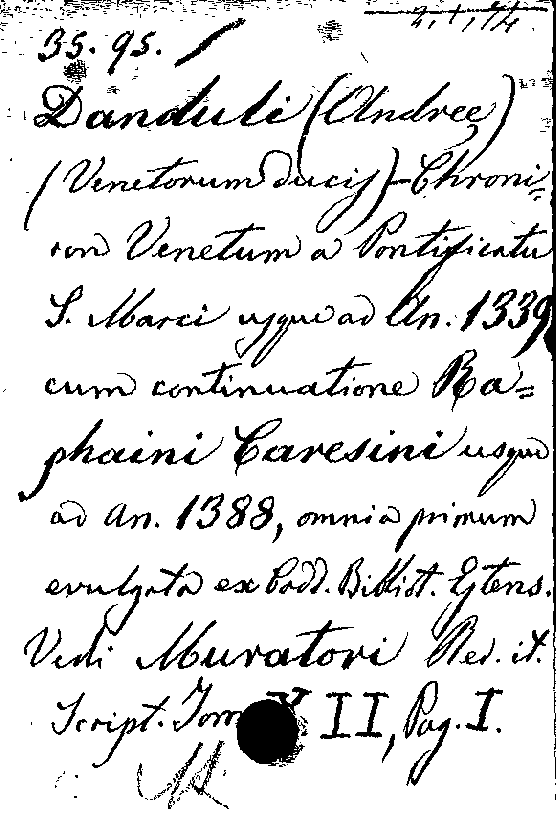 35. 95.
Danduli (Andreę)
(Venetorum Ducis) - Chroni=
con Venetum a Pontificatu
S. Marci usque ad An. 1339
cum continuatione Ra=
phaini Caresini usque
ad An. 1388, omnia primum
evulgata ex Codd. Bibliot. Estens.
Vedi Muratori Rer. it.
Script. Tom XII, Pag. I.